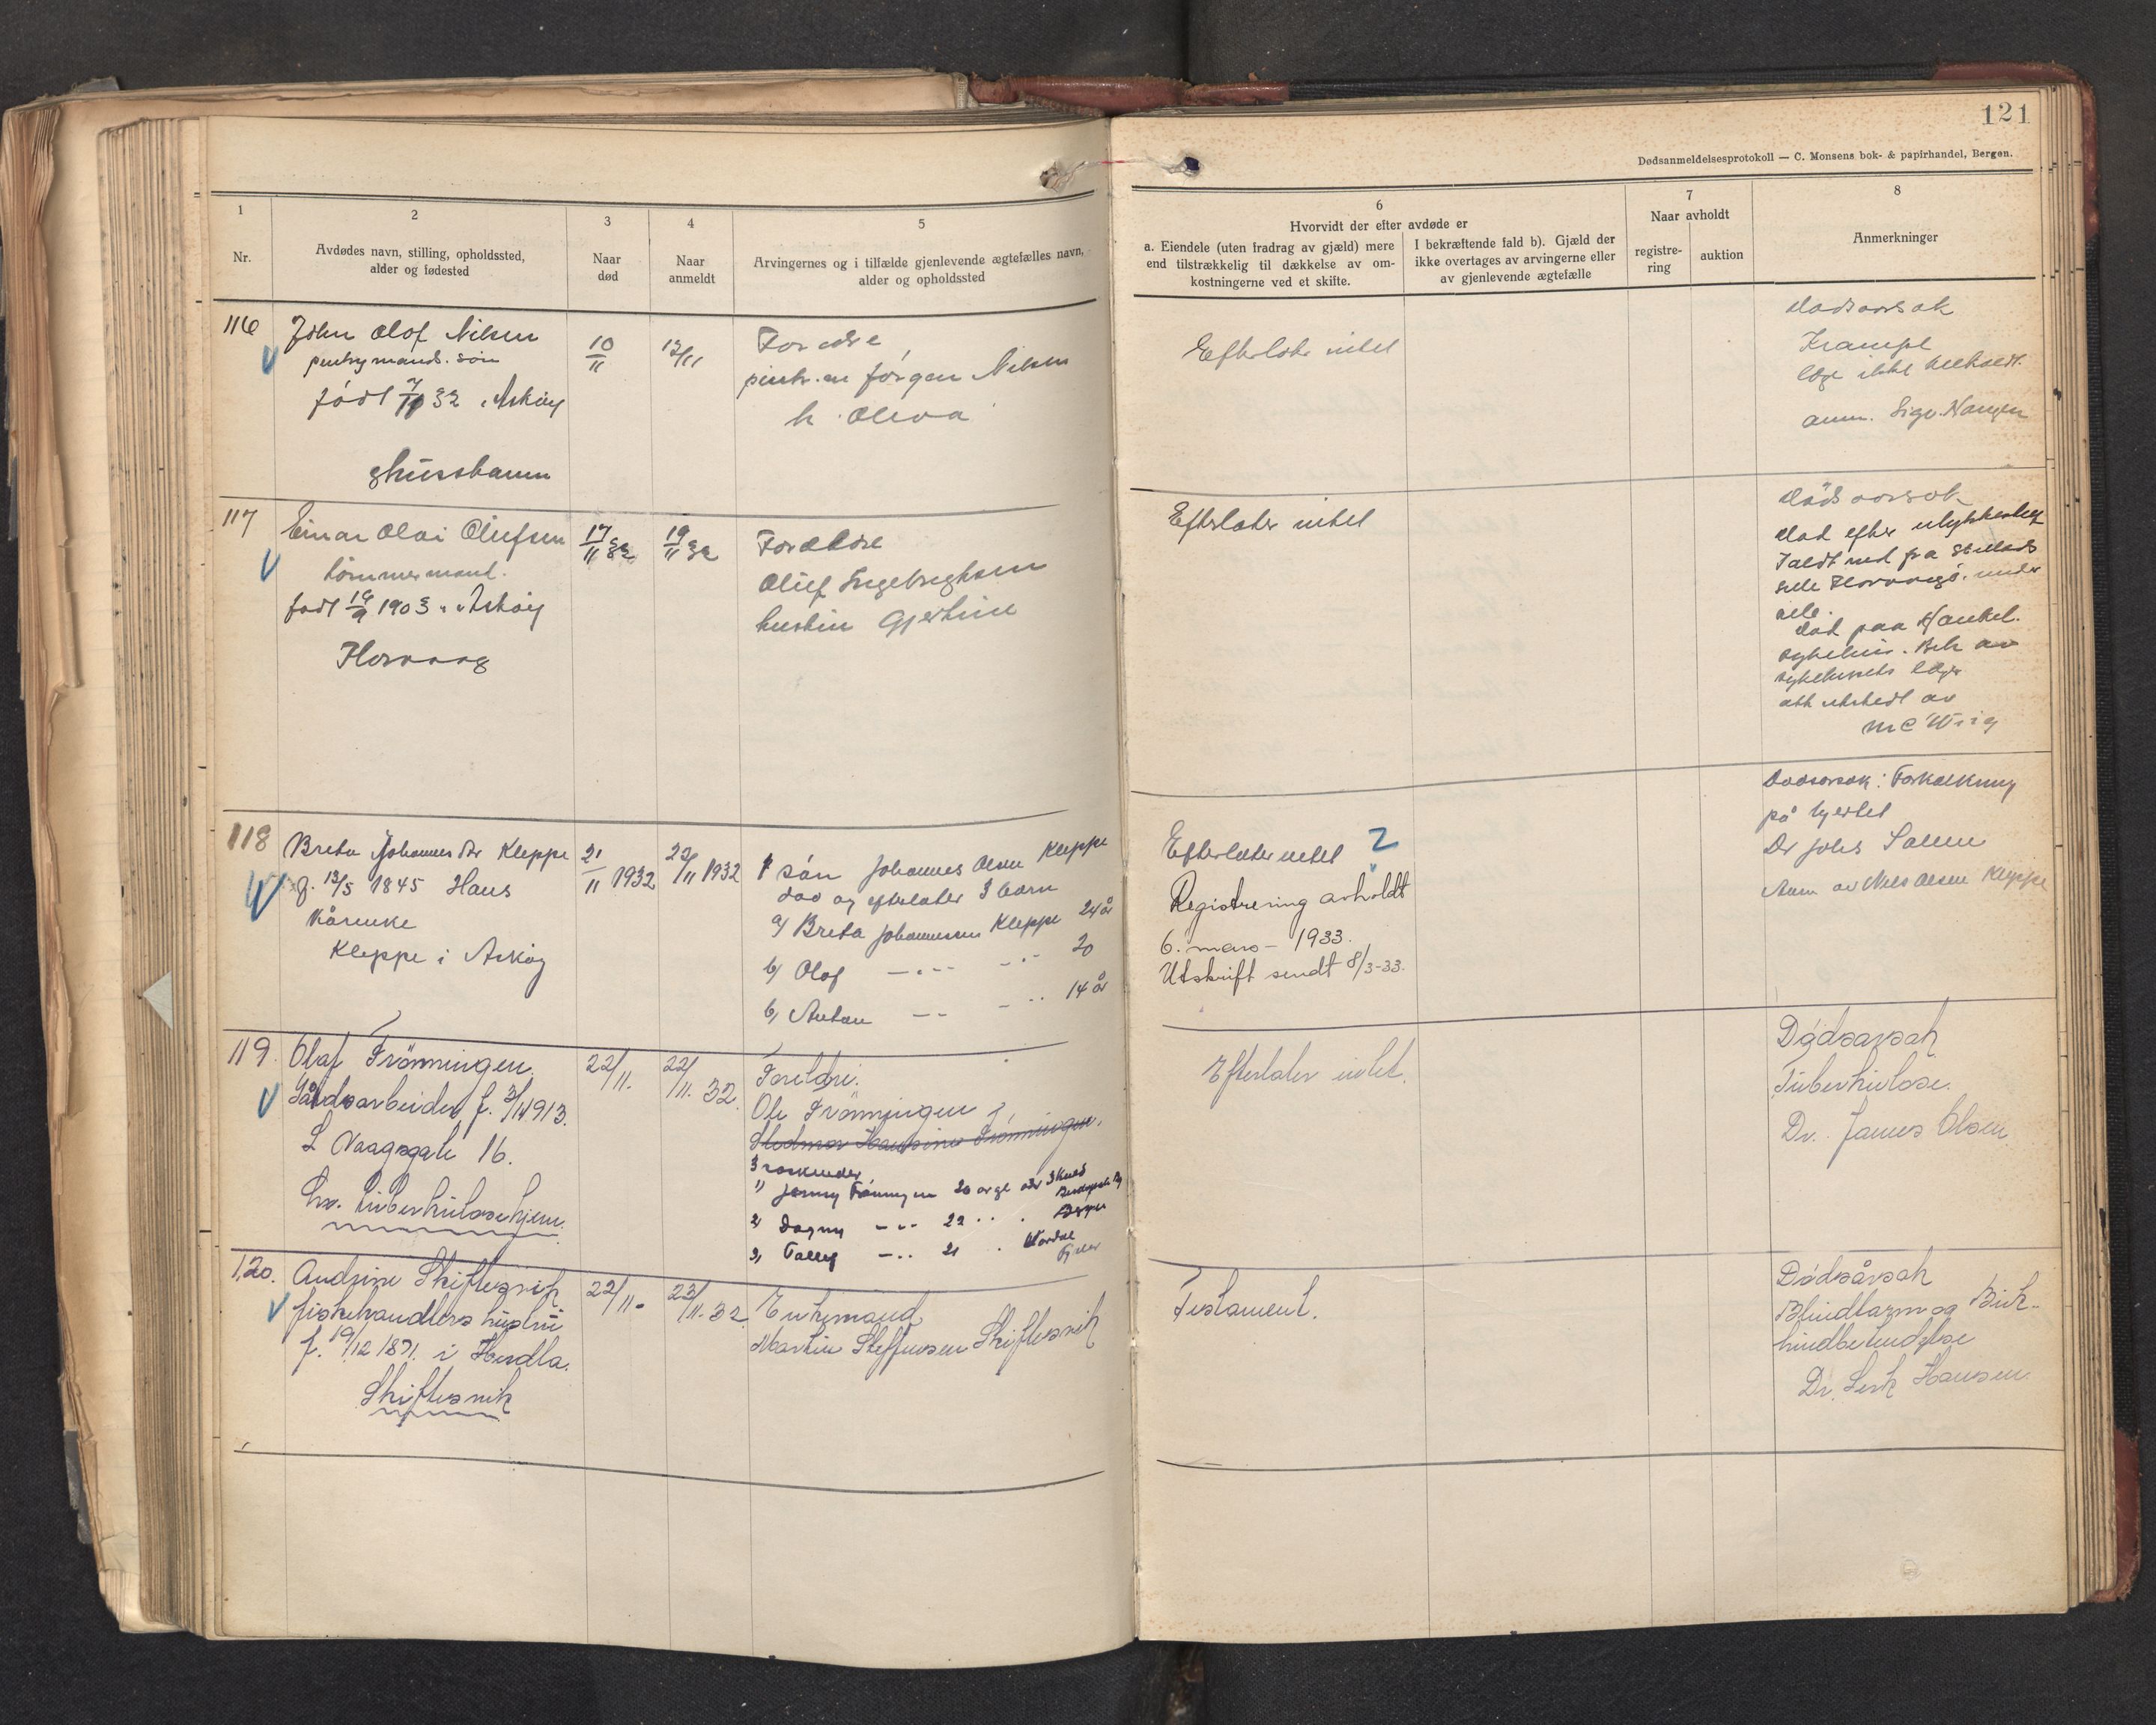 121
Dødsanmeldelsesprotokoll — C. Monsens bok- & papirhandel, Bergen.
1
Nr.
2
Avdødes navn, stilling, opholdssted,
alder og fødested
3
Naar
død
4
Naar
anmeldt
5
Arvingernes og i tilfælde gjenlevende ægtefælles navn,
alder og opholdssted
6
Hvorvidt der efter avdøde er
a. Eiendele (uten fradrag av gjæld) mere
end tilstrækkelig til dækkelse av om-
kostningerne ved et skifte.
I bekræftende fald b). Gjæld der
ikke overtages av arvingerne eller
av gjenlevende ægtefælle
7
Naar avholdt
registre-
ring
auktion
8
Anmerkninger
116
John Olof Nilsen
pentrymands. søn
født 32 i Askøy
10/11
12/11
Forældre
Jørgen Nilsen
h. Oliva
Efterlater intet
Dødsaarsak
Krampe
læge ikke
anm. Sigv.
117
Einar Olai Olufsen
tømmermand.
født 19/9 1903 i Askøy
Florvaag
17/11 32
19/11 32
Forældre
Oluf Ingebrigtsen
hustru Gjertine
Efterlater intet
Dødsaarsak
død efter ulykkes
Faldt ned fra
død paa Haukel.
sykehus. Beh av
sykehusets læge
att utstedt av
118
Brita Johannesdtr Kleppe
f. 13/5 1845 Haus
Kårenke
Kleppe i Askøy
21/11 1932
22/11 1932
1 søn Johannes Olsen Kleppe
død og efterlater 3 barn
a/ Brita Johannessen Kleppe 24 år
b/ Olaf — " — — " — 20
b/ Anton — — — " 14 år
Efterlater intet ?
Registrering avholdt
6. mars – 1933.
Utskrift sendt 8/3-33.
Dødsorsak: Forkalkning
på hjertet
Dr Johs
Anm av Nils Olsen Kleppe
119.
Olaf Frønningen.
Gårdsarbeider f. 3/1 1913.
L Vaagsgate 16.
tuberkulosehjem.
22/11.
22/11. 32.
Foreldre.
Ole Frønningen
Hansine Frønningen.
3 søskende
1) Jenny Frønningen 20
2) Dagny — " — 22
3) — " — 21
Efterlater intet.
Dødsårsak
Tuberkulose.
Dr. James Olsen
120.
Andrine Skiftesvik
fiskehandlers hustru
f. 19/12 1871. i Herdla.
Skiftesvik
22/11.
23/11. 32.
Enkemand
Martin Steffensen Skiftesvik
Testament.
Dødsårsak
Blindtarm og Buk-
hindbetendelse
Dr. Hansen.